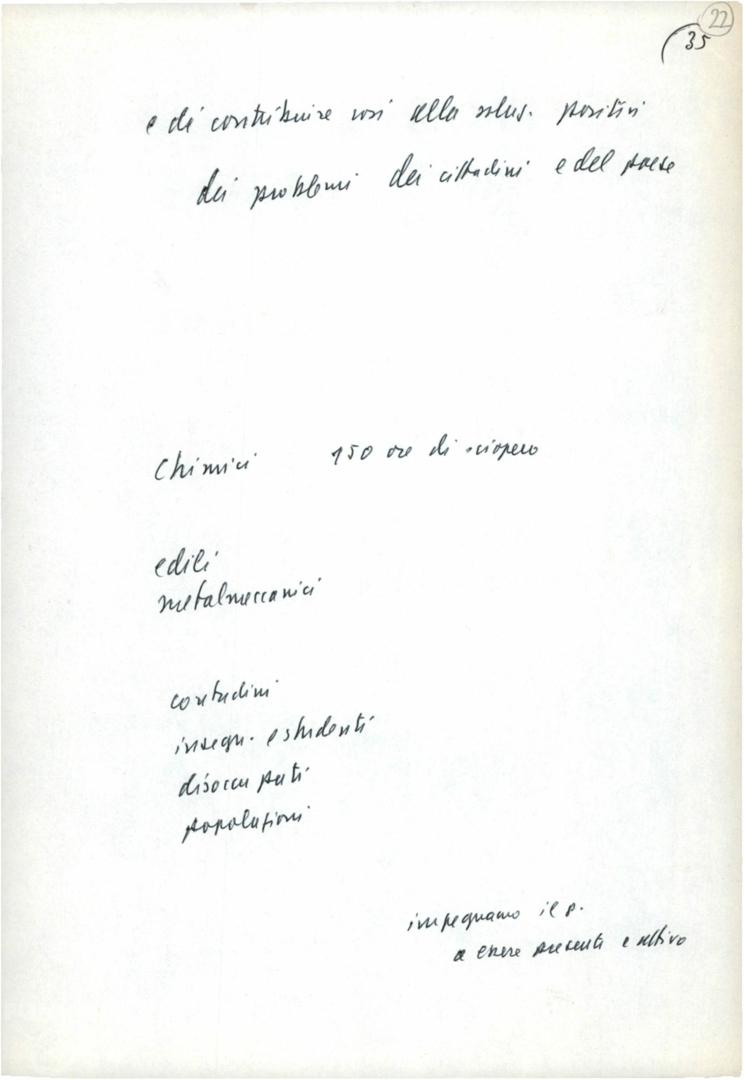 22
35
e di contribuire così alla soluz. positiva
dei problemi dei cittadini e del paese
Chimici 150 ore di sciopero
edili
metalmeccanici
contadini
insegn. e studenti
disoccupati
popolazioni
impegnamo il p.
a essere presente e attivo